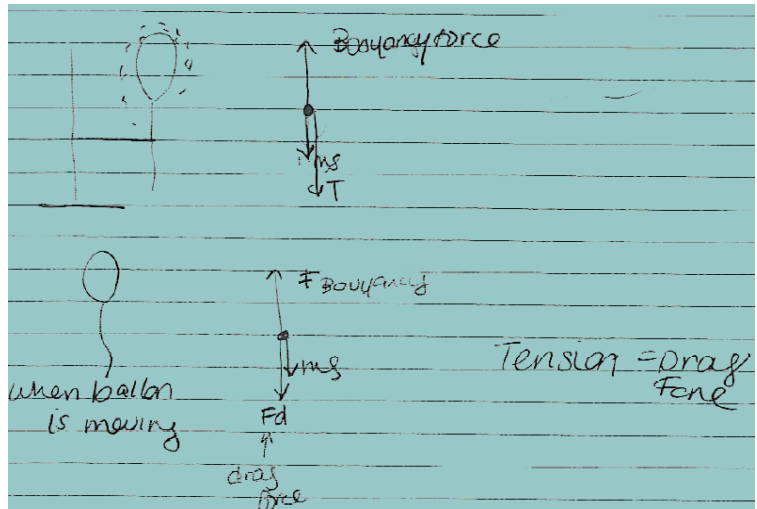 Bouyancy force
mg
T
F Bouyancy
mg
Tension = Drag
Force
when ballon
is moving
Fd
drag
force